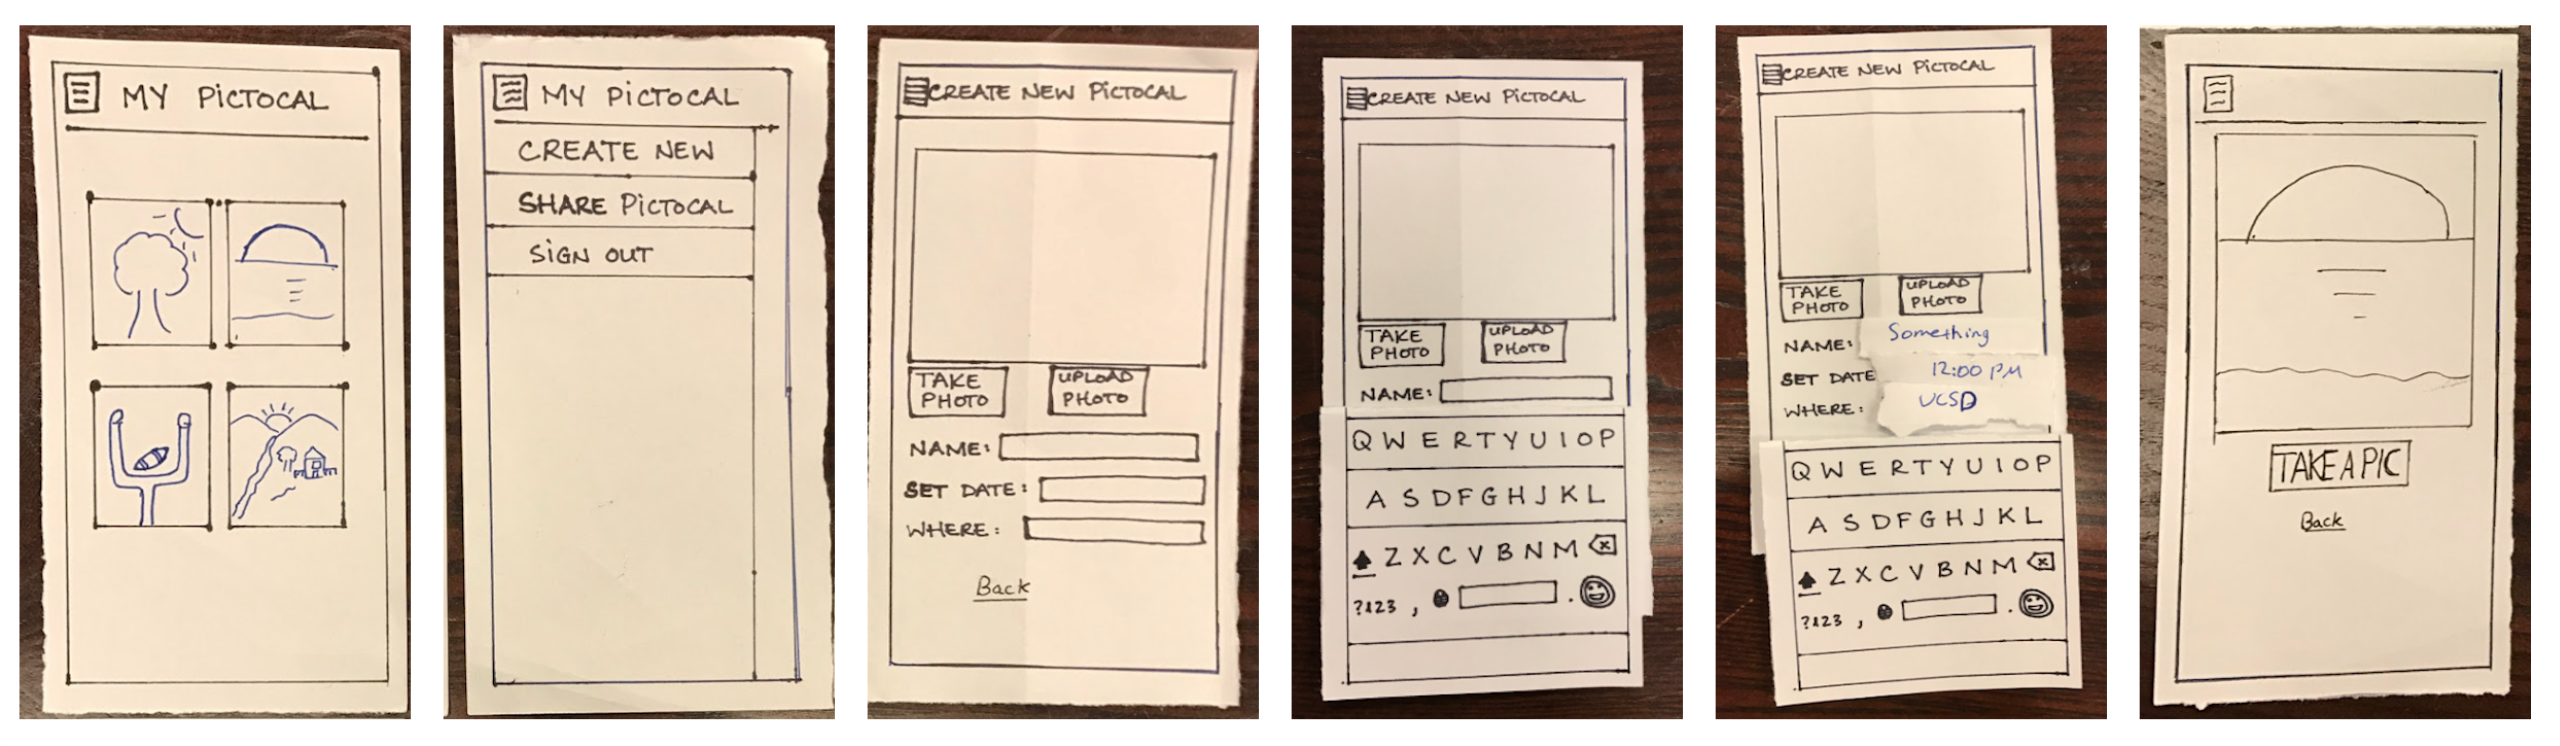 MY PiCTOCAL
MY PiCTOCAL
CREATE NEW
SHARE PiCTOCAL
SiGN OUT
CREATE NEW PiCTOCAL
TAKE PHOTO
UPLOAD PHOTO
NAME:
SET DATE:
WHERE:
Back
CREATE NEW PiCTOCAL
TAKE PHOTO
UPLOAD PHOTO
NAME:
Q W E R T Y U I O P
A S D F G H J K L
Z X C V B N M
?123 , .
CREATE NEW PiCTOCAL
TAKE PHOTO
UPLOAD PHOTO
NAME: Something
SET DATE 12:00 PM
WHERE: UCSD
Q W E R T Y U I O P
A S D F G H J K L
Z X C V B N M
?123 , .
TAKE A PIC
Back